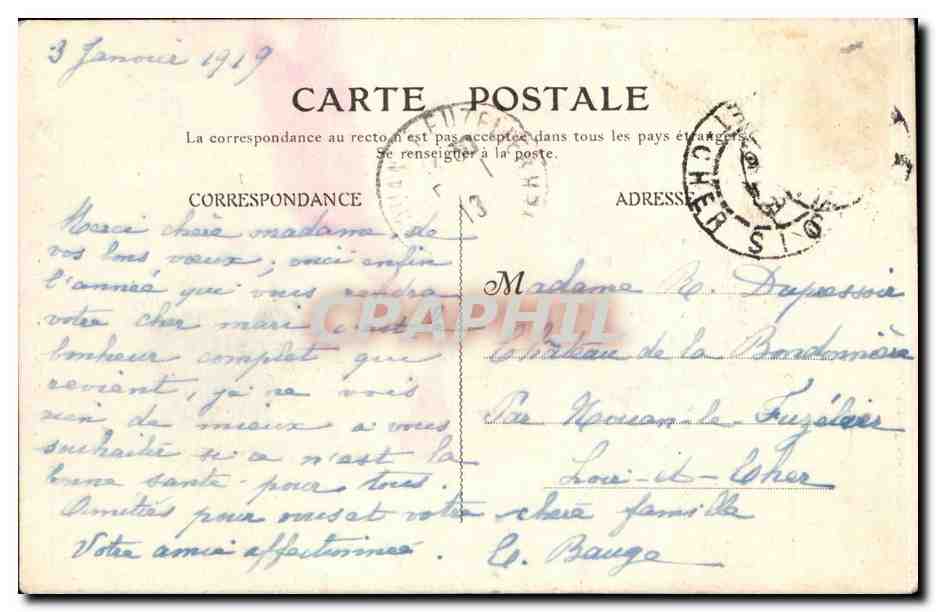 3 Janvier 1919
CARTE POSTALE
La correspondance au recto n'est pas acceptée dans tous les pays étrangers.
Se renseigner à la poste.
CORRESPONDANCE
ADRESSE
CHER
Merci chère madame, de
vos bons vœux; voici enfin
l'année qui vous rendra
votre cher mari c'est le
bonheur complet qui
revient, je ne vois
rien de mieux a vous
souhaiter si ce n'est la
bonne santé pour tous.
Amitiés pour vous et votre chère famille
Votre amie affectionnée.
E. Bauge
Madame R. Dupessoir
Château de la Bondonnière
Par Nouan-le-Fuzélier
Loir-et-Cher
CPAPHIL